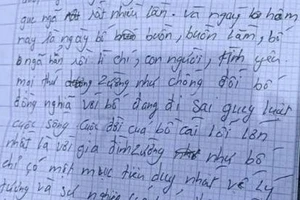 gục ngã rất nhiều lần. Và ngay hôm
nay là ngày bố buồn, buồn lắm, bố
ngã hẳn rồi lí chí, con người, tình yêu
mọi thứ tưởng như chống đối bố
đồng nghĩa với bố đang đi sai quy luật
cuộc sống cuộc đời của bố cái lỗi lớn
nhất là với gia đình như bố
chỉ có một mục tiêu duy nhất về lý
tưởng và sự nghiệp